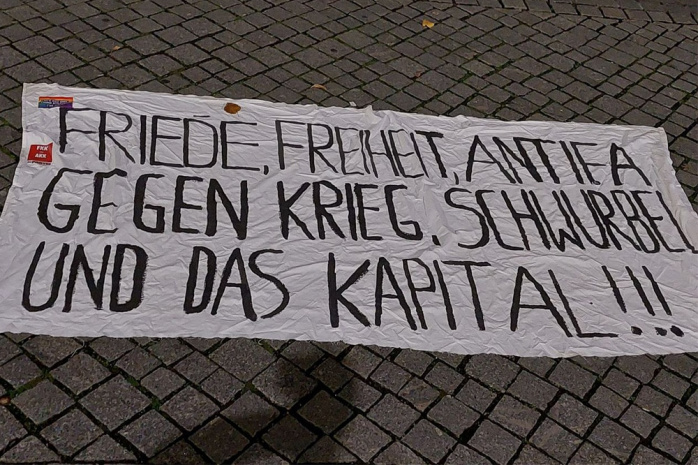 FRIEDE, FREIHEIT, ANTIFA
GEGEN KRIEG, SCHWURBEL
UND DAS KAPITAL!!!